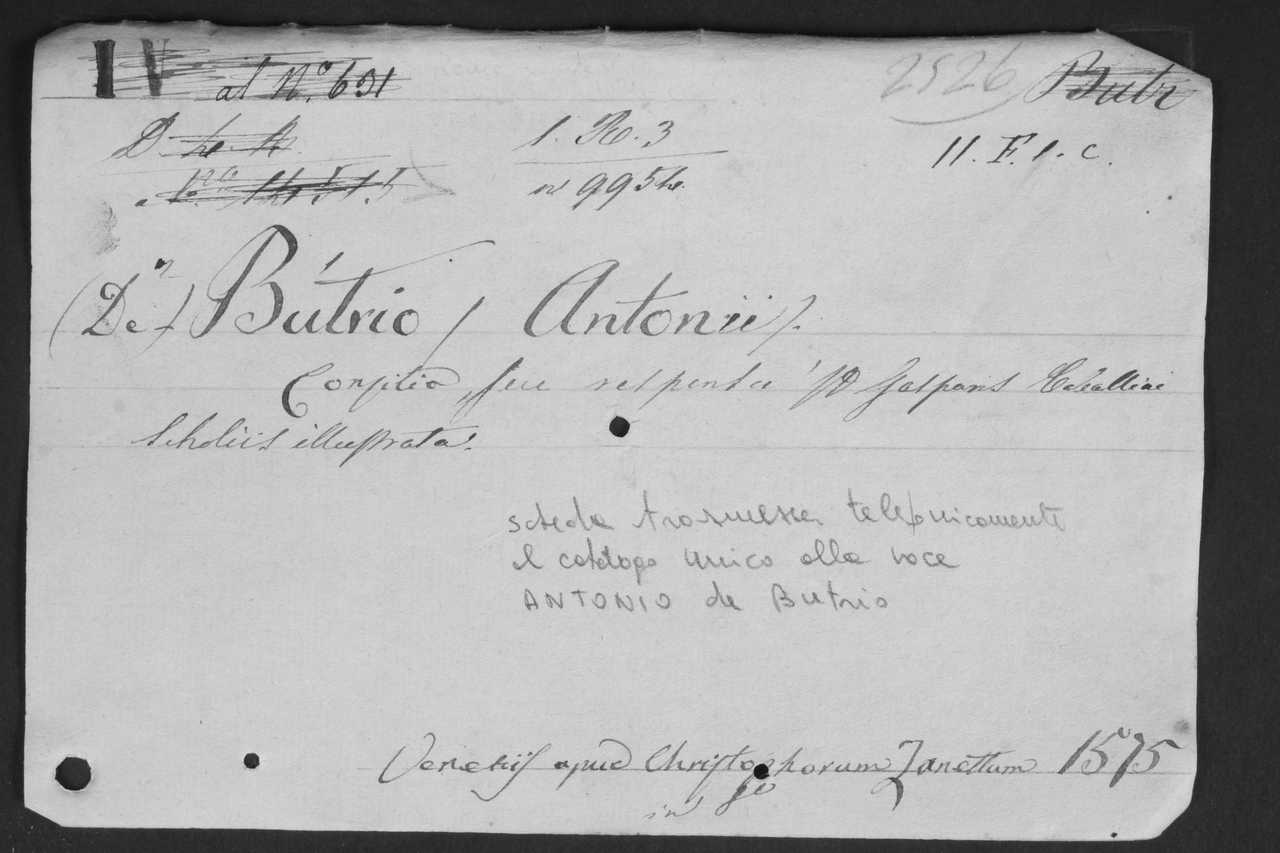 IV
al N.º 631
2526
Butr
1. R. 3
11. F. 1. c.
n 995
(De) Butrio (Antonii).
Consilia, seu responsa D Gasparis Caballini
Scholiis illustrata.
scheda trasmessa telefonicamente
al catalogo unico alla voce
ANTONIO da Butrio
Venetiis apud Christophorum Zanettum 1575
in fo